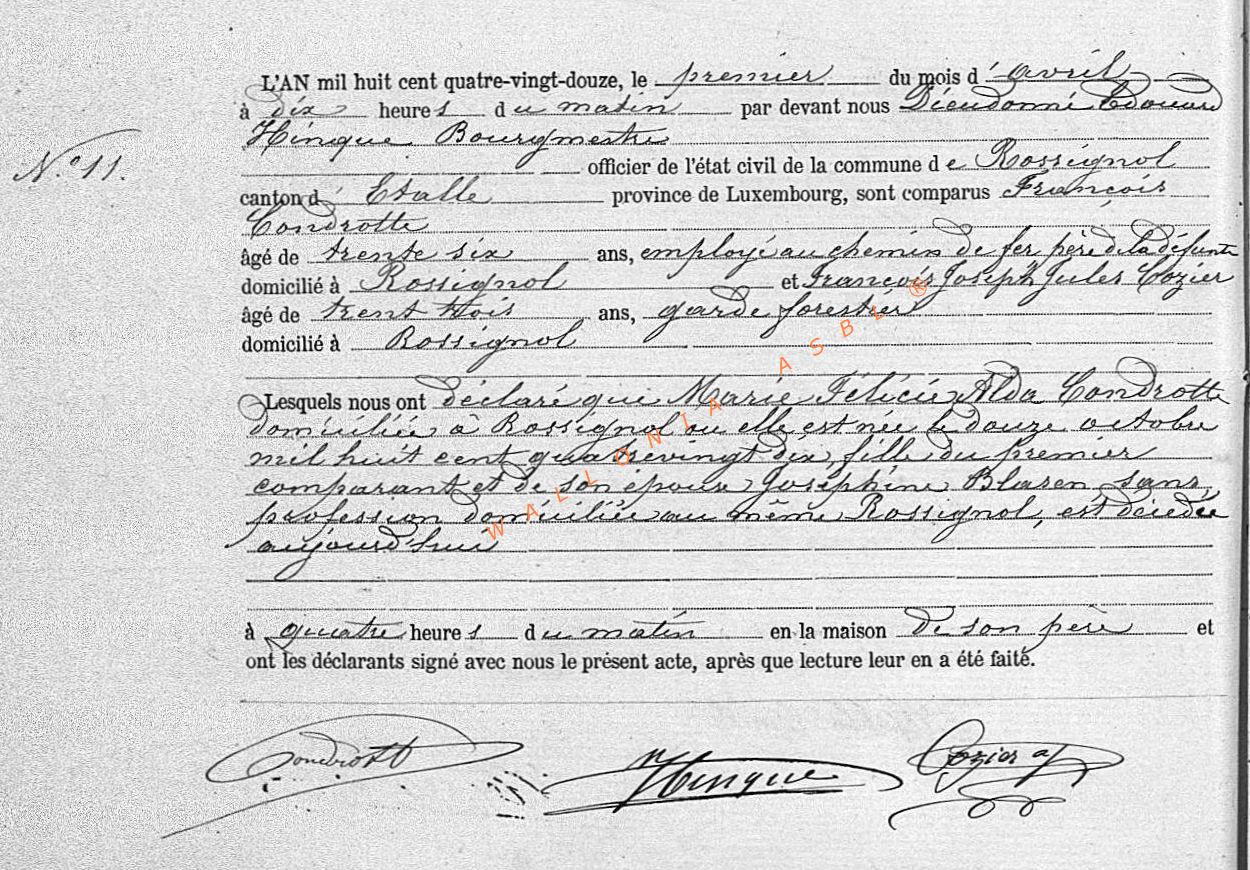 L'AN mil huit cent quatre-vingt-douze, le premier du mois d'avril
à dix heures du matin par devant nous Dieudonné Edouard
Hinque Bourgmestre
N.° 11.
officier de l'état civil de la commune de Rossignol
canton d'Etalle province de Luxembourg, sont comparus François
Condrotte
âgé de trente six ans, employé au chemin de fer père de la défunte
domicilié à Rossignol et François Joseph Jules Cozier
âgé de trent trois ans, garde forestier
domicilié à Rossignol
Lesquels nous ont déclaré que Marie Félicie Alda Condrotte
domiciliée à Rossignol ou elle est née le douze octobre
mil huit cent quatrevingt dix, fille du premier
comparant et de son épouse Joséphine Blasen sans
profession domiciliée au même Rossignol, est décédée
aujourd'hui
à quatre heures du matin en la maison de son père et
ont les déclarants signé avec nous le présent acte, après que lecture leur en a été faite.
Condrott Hinque Cozier
WALLONIA ASBL ®